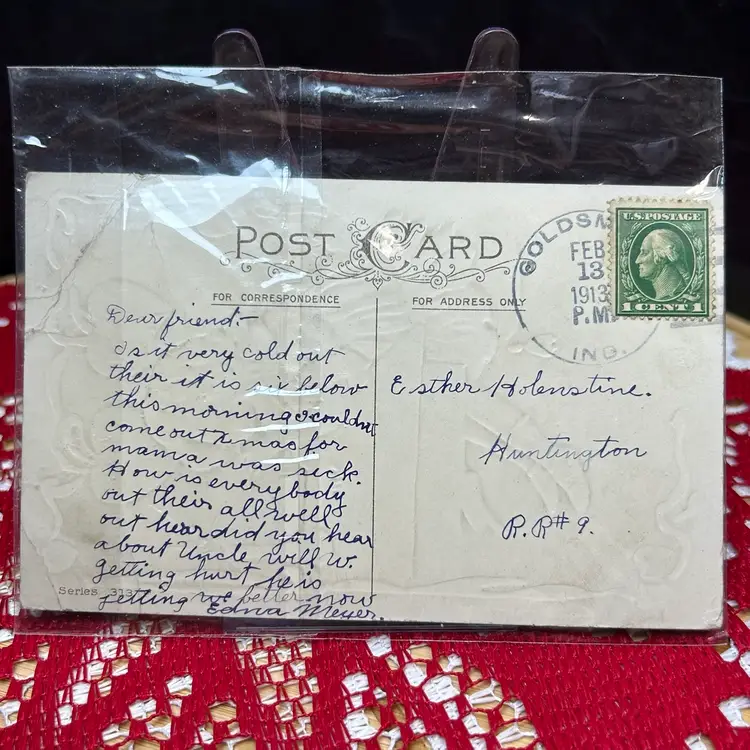 POST CARD
FOR CORRESPONDENCE
FOR ADDRESS ONLY
GOLDSM
FEB
13
1913
P.M.
IND.
U.S. POSTAGE
1 CENT 1
Dear friend:-
Is it very cold out
their it is six below
this morning I couldnt
come out Xmas for
mama was sick.
How is everybody
out their all well
out hear did you hear
about Uncle Will W.
getting hurt he is
getting better now
Edna Meyer.
Series
Esther Holenstine.
Huntington
R.R# 9.